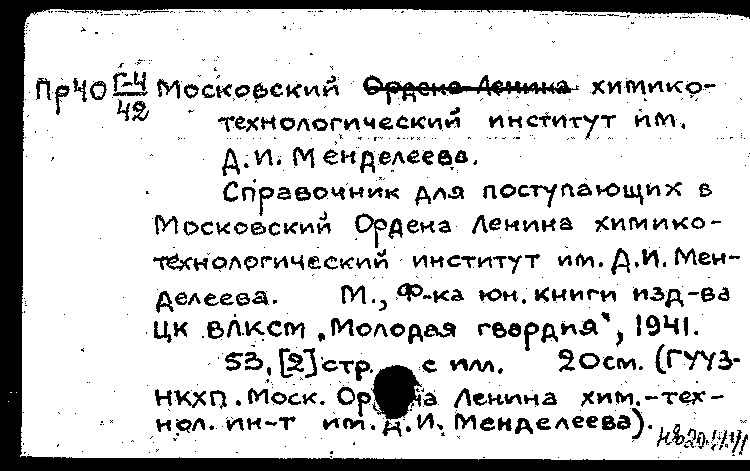 Пр40 Г-4/42 Московский Ордена Ленина химико-
технологический институт им.
Д.И. Менделеева.
Справочник для поступающих в
Московский Ордена Ленина химико-
технологический институт им. Д.И. Мен-
делеева. М., Ф-ка юн. книги изд-ва
ЦК ВЛКСМ „Молодая гвардия“, 1941.
53, [2] стр. с ил. 20см. (ГУУЗ-
НКХП. Моск. Ленина хим.-тех-
нол. ин-т им. Д.И. Менделеева).